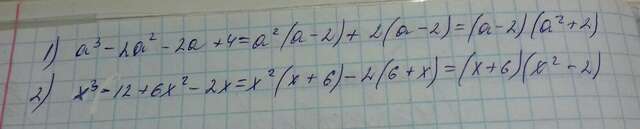 1) a³-2a²-2a+4=a²(a-2)+2(a-2)=(a-2)(a²+2)
2) x³-12+6x²-2x=x²(x+6)-2(6+x)=(x+6)(x²-2)